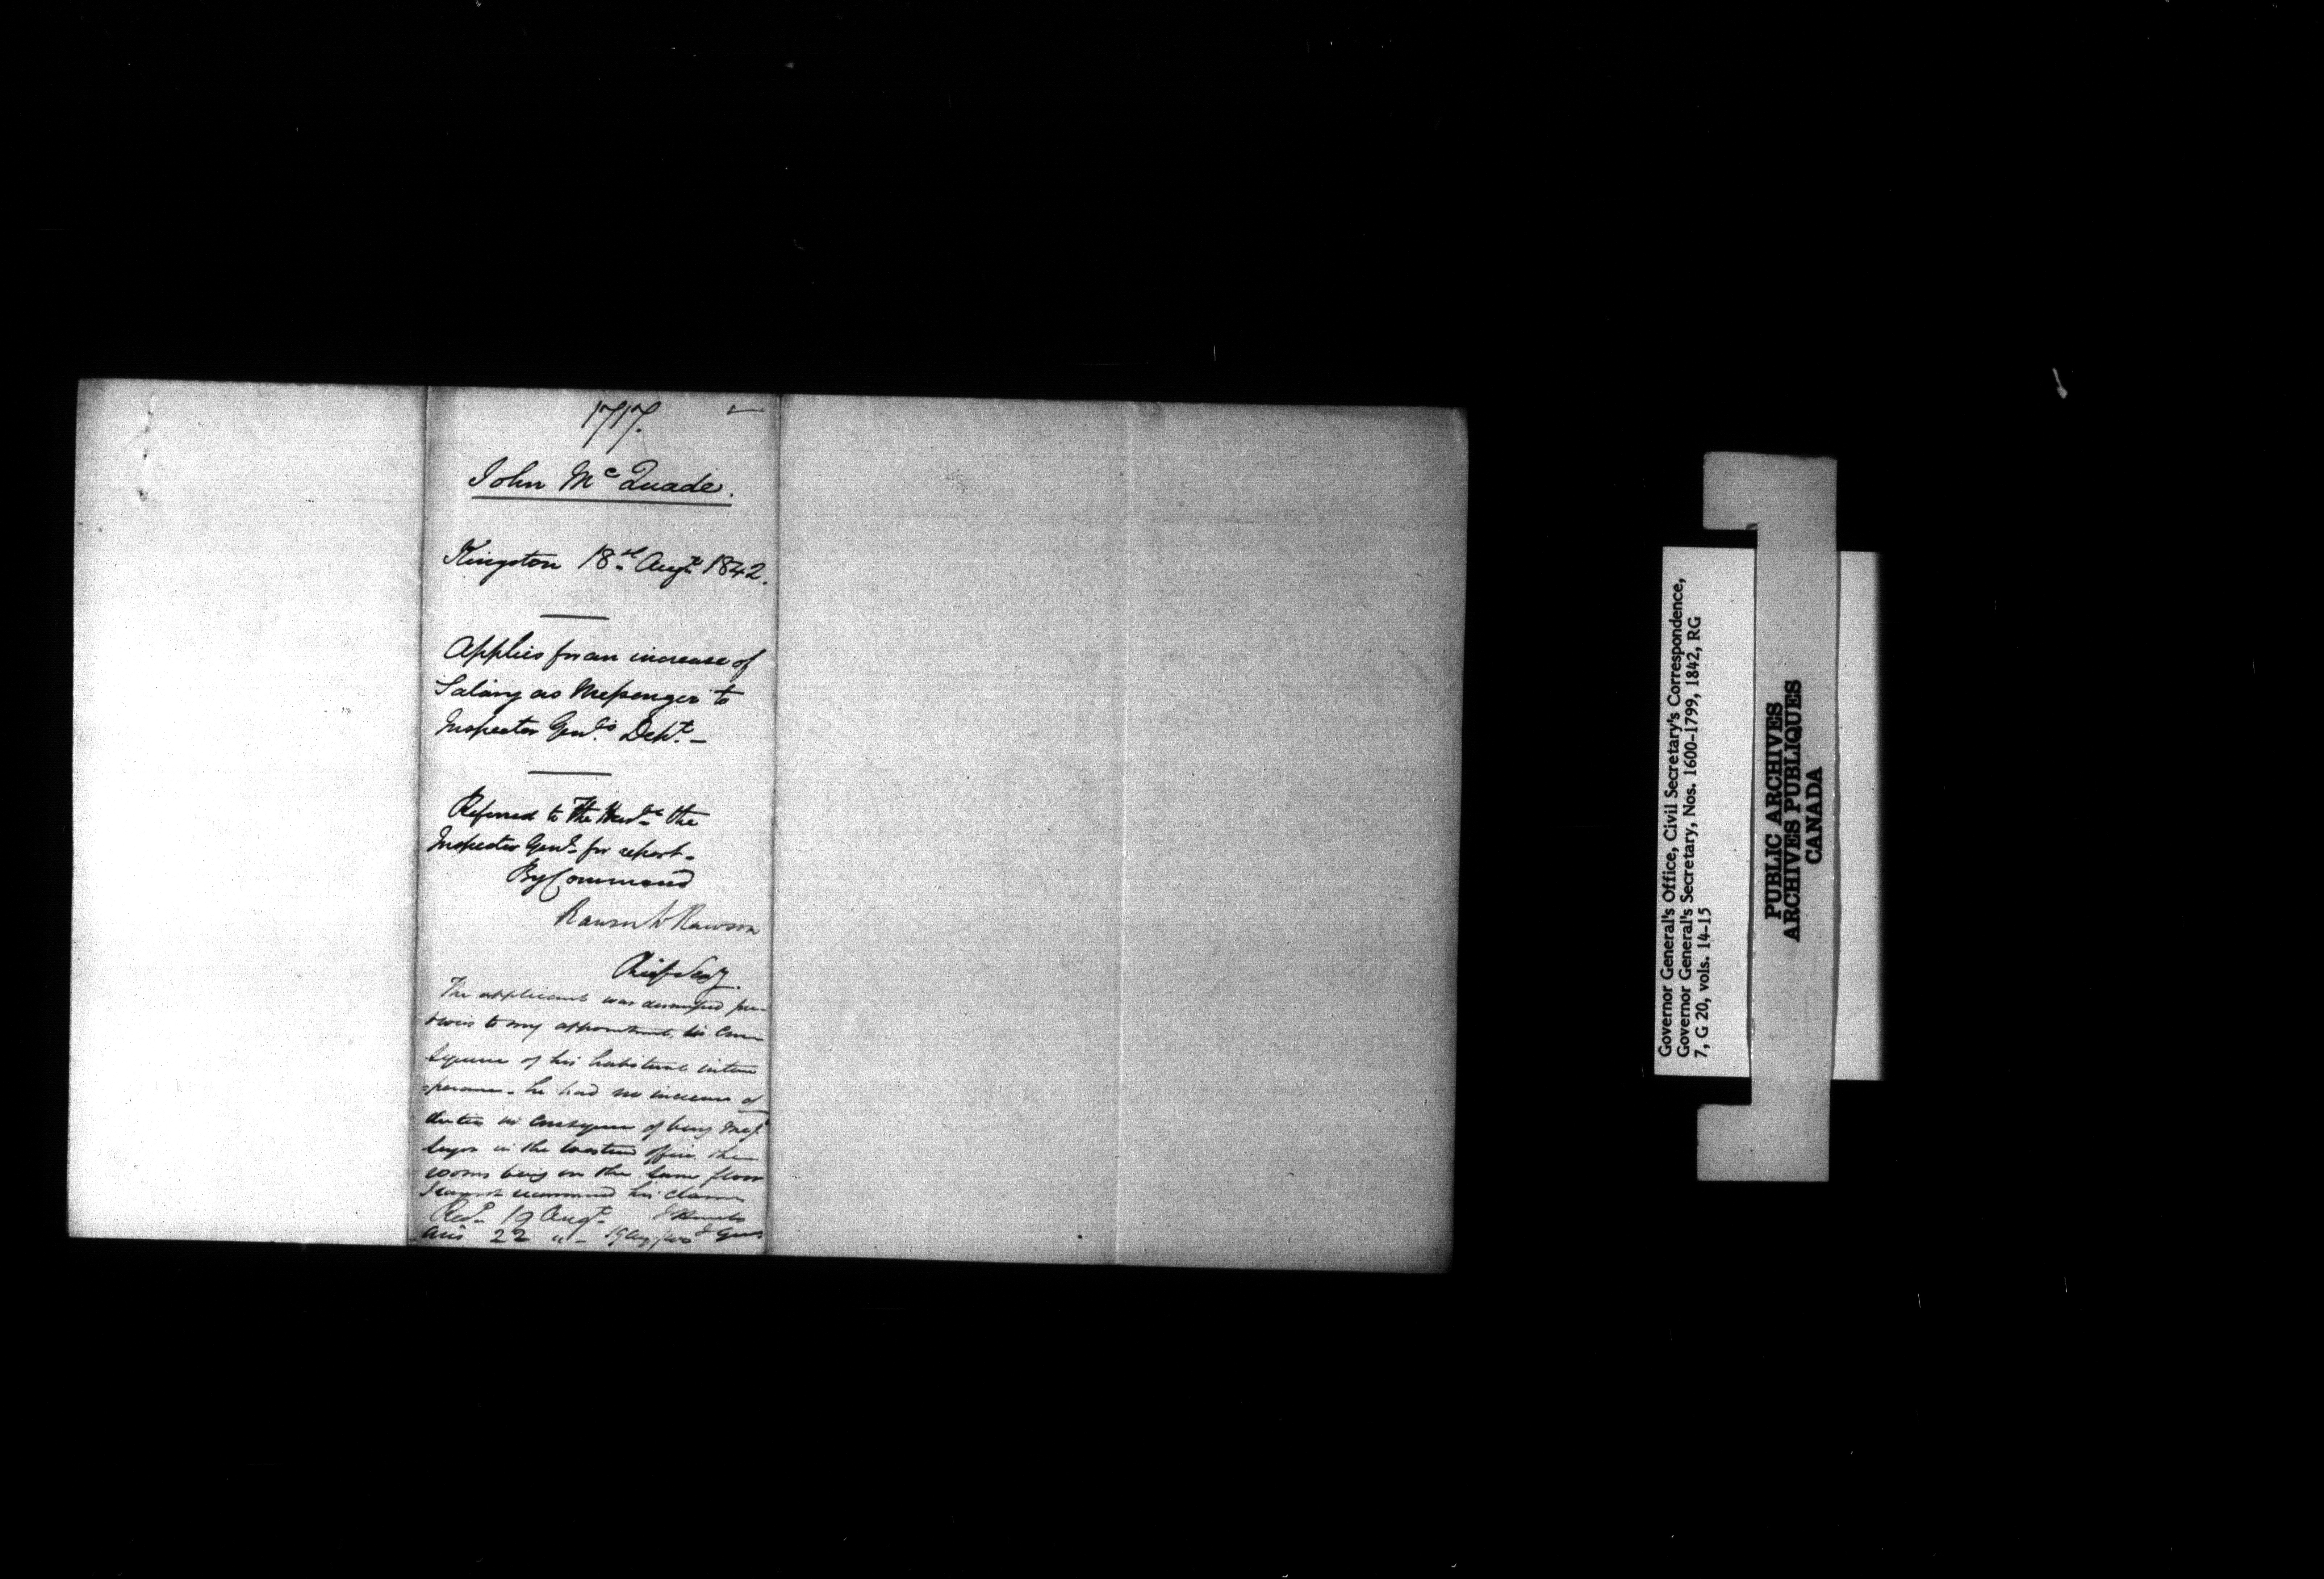 1717.
John Mc Quade.
Kingston 18th Augt 1842.
Applies for an increase of
Salary as Messenger to
Inspector Genl's Dept.-
Referred to The Honble the
Inspector Genl. for report-
By Command
Rawson W Rawson
Chief Secy.
The applicant was dismissed pre-
vious to my appointment, in con
sequence of his habitual intem
=perance - he had no increase of
duties in consequence of being Mes
senger in the Western office the
rooms being on the same floor
I cannot recommend his claim
Recd. 19 Augt. F Hincks
Ans 22 "- 19 Aug I Genl
Governor General's Office, Civil Secretary's Correspondence,
Governor General's Secretary, Nos. 1600-1799, 1842, RG
7, G 20, vols. 14-15
PUBLIC ARCHIVES
ARCHIVES PUBLIQUES
CANADA